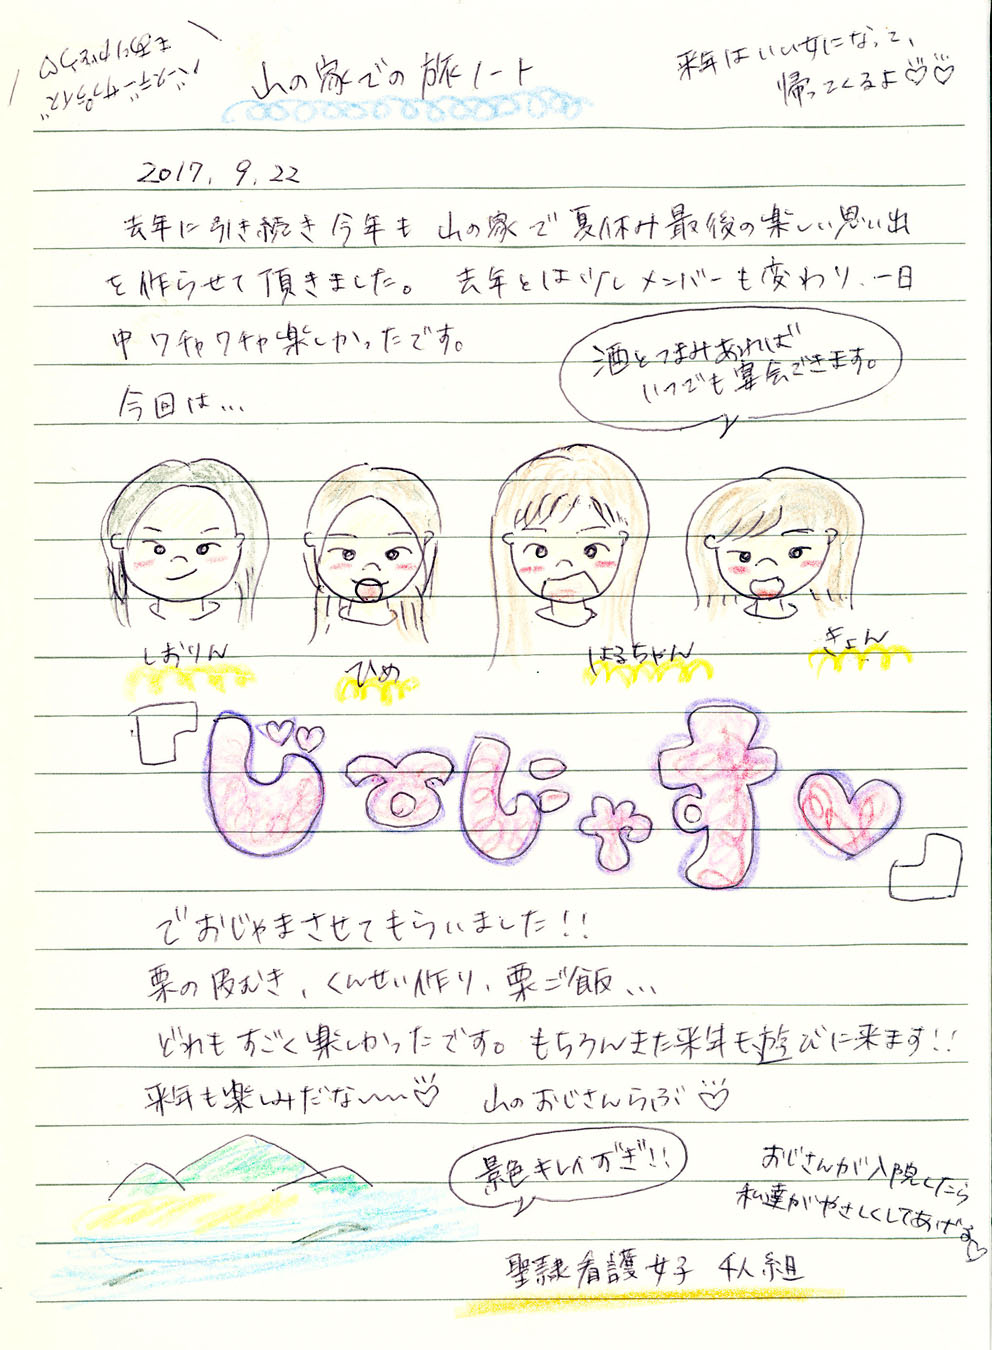 バースデーサプライズ
山の家での旅ノート
来年はいい女になって、
帰ってくるよ♡♡
2017. 9. 22
去年に引き続き今年も 山の家で夏休み最後の楽しい思い出
を作らせて頂きました。 去年とは少しメンバーも変わり、一日
中ワチャワチャ楽しかったです。
酒とつまみあれば
いつでも宴会できます。
今回は...
しおりん
ひめ
はるちゃん
きょん
『じーじゃす♡』
でおじゃまさせてもらいました!!
栗の皮むき、くんせい作り、栗ご飯...
どれもすごく楽しかったです。もちろんまた来年も遊びに来ます!!
来年も楽しみだな〜〜♡ 山のおじさんらぶ♡
景色キレイすぎ!!
おじさんが入院したら
私達がやさしくしてあげる♡
聖隷看護女子 4人組